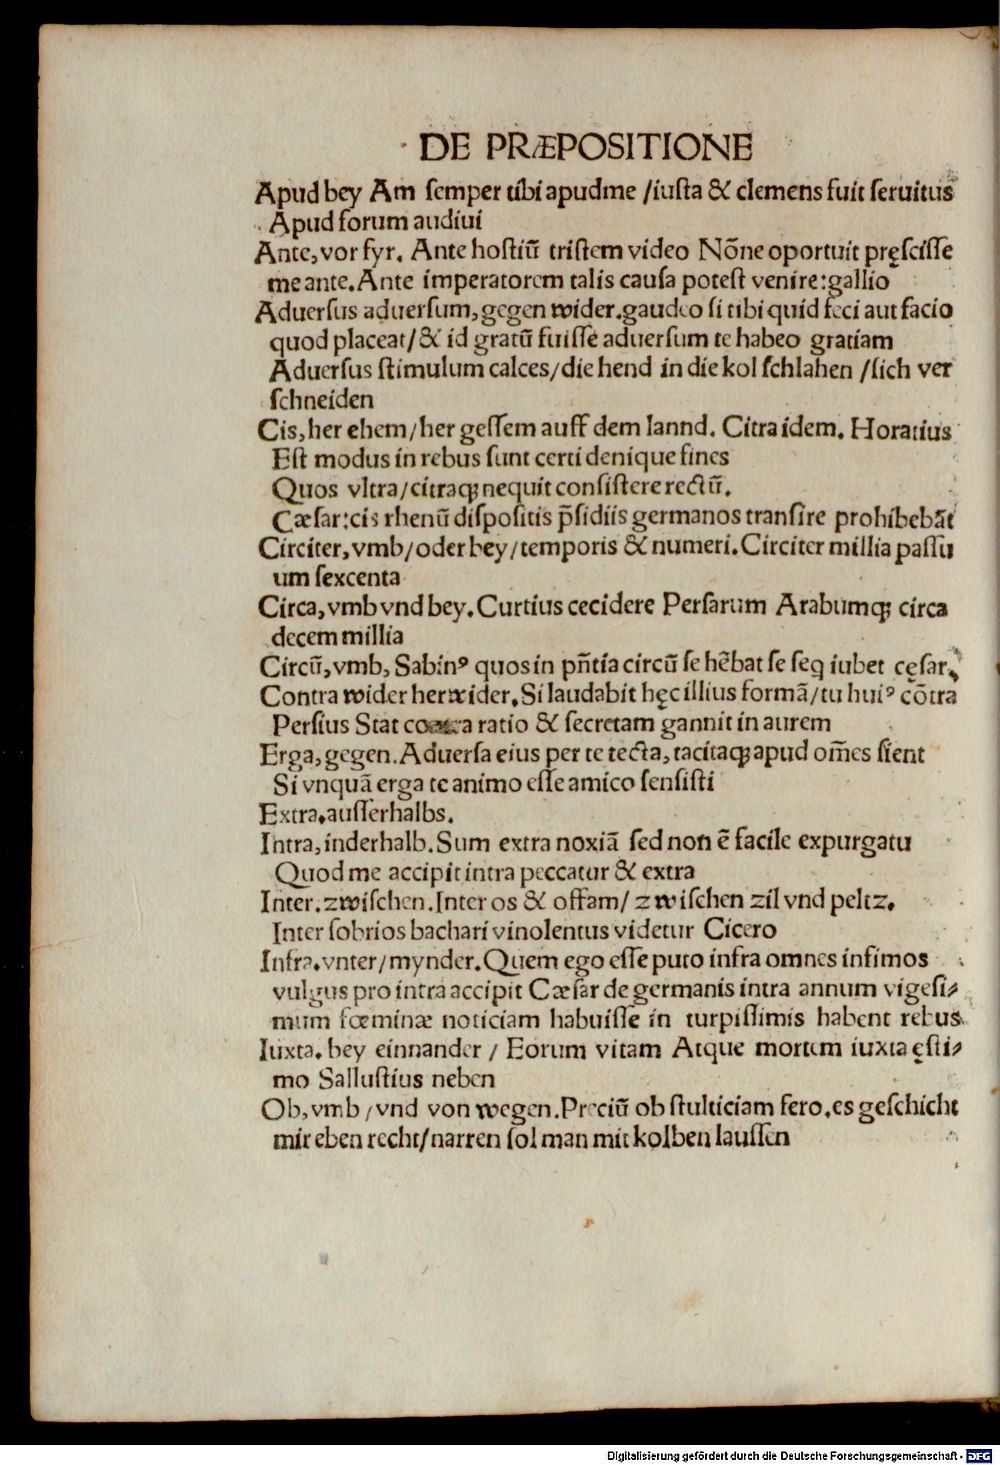 DE PRÆPOSITIONE
Apud bey Am ſemper tibi apud me /iuſta & clemens fuit ſeruitus
Apud forum audiui
Ante, vor fyr. Ante hoſtiū triſtem video Nōne oportuit pręſciſſe
me ante. Ante imperatorem talis cauſa poteſt venire: gallio
Aduerſus aduerſum, gegen wider. gaudeo ſi tibi quid feci aut facio
quod placeat/ & id gratū fuiſſe aduerſum te habeo gratiam
Aduerſus ſtimulum calces/ die hend in die kol ſchlahen /ſich ver
ſchneiden
Cis, her ehem/ her geſſem auff dem lannd. Citra idem. Horatius
Eſt modus in rebus ſunt certi denique fines
Quos vltra/ citraqꝫ nequit conſiſtere rectū.
Cæſar: cis rhenū diſpoſitis p̄ſidiis germanos tranſire prohibebāt
Circiter, vmb/ oder bey/ temporis & numeri. Circiter millia paſſu
um ſexcenta
Circa, vmb vnd bey. Curtius cecidere Perſarum Arabumqꝫ circa
decem millia
Circū, vmb, Sabinꝰ quos in pn̄tia circū ſe hēbat ſe ſeq̄ iubet cęſar.
Contra wider herwider. Si laudabit hęc illius formā/ tu huiꝰ cōtra
Perſius Stat contra ratio & ſecretam gannit in aurem
Erga, gegen. Aduerſa eius per te tecta, tacitaqꝫ apud om̄es ſient
Si vnquā erga te animo eſſe amico ſenſiſti
Extra. auſſerhalbs.
Intra, inderhalb. Sum extra noxiā ſed non ē facile expurgatu
Quod me accipit intra peccatur & extra
Inter. zwiſchen. Inter os & offam/ zwiſchen zil vnd peltz.
Inter ſobrios bachari vinolentus videtur Cicero
Infra. vnter/ mynder. Quem ego eſſe puto infra omnes infimos
vulgus pro intra accipit Cæſar de germanis intra annum vigeſi⸗
mum fœminæ noticiam habuiſſe in turpiſſimis habent rebus.
Iuxta. bey einnander / Eorum vitam Atque mortem iuxta ęſti⸗
mo Salluſtius neben
Ob, vmb /vnd von wegen. Preciū ob ſtulticiam fero. es geſchicht
mir eben recht/ narren ſol man mit kolben lauſſen
Digitalisierung gefördert durch die Deutsche Forschungsgemeinschaft - DFG